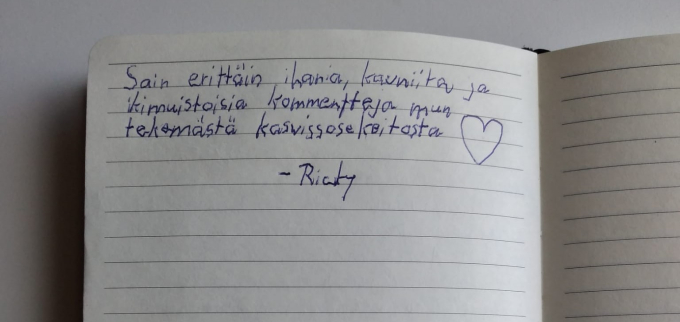 Sain erittäin ihania, kauniita ja
ikimuistoisia kommentteja mun
tekemästä kasvissosekeitosta